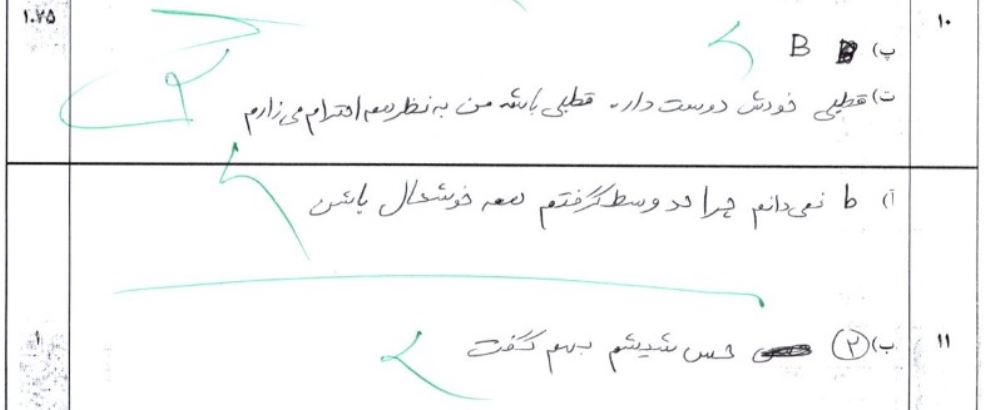 ۱.۷۵
۱۰
پ) B
ت) قطبی خودش دوست داره قطبی باشه من به نظر همه احترام می‌زارم
آ) b نمی‌دانم چرا حد وسط گرفتم همه خوشحال باشن
۱۱
ب) ۲ حس شیشم بهم گفت
۱